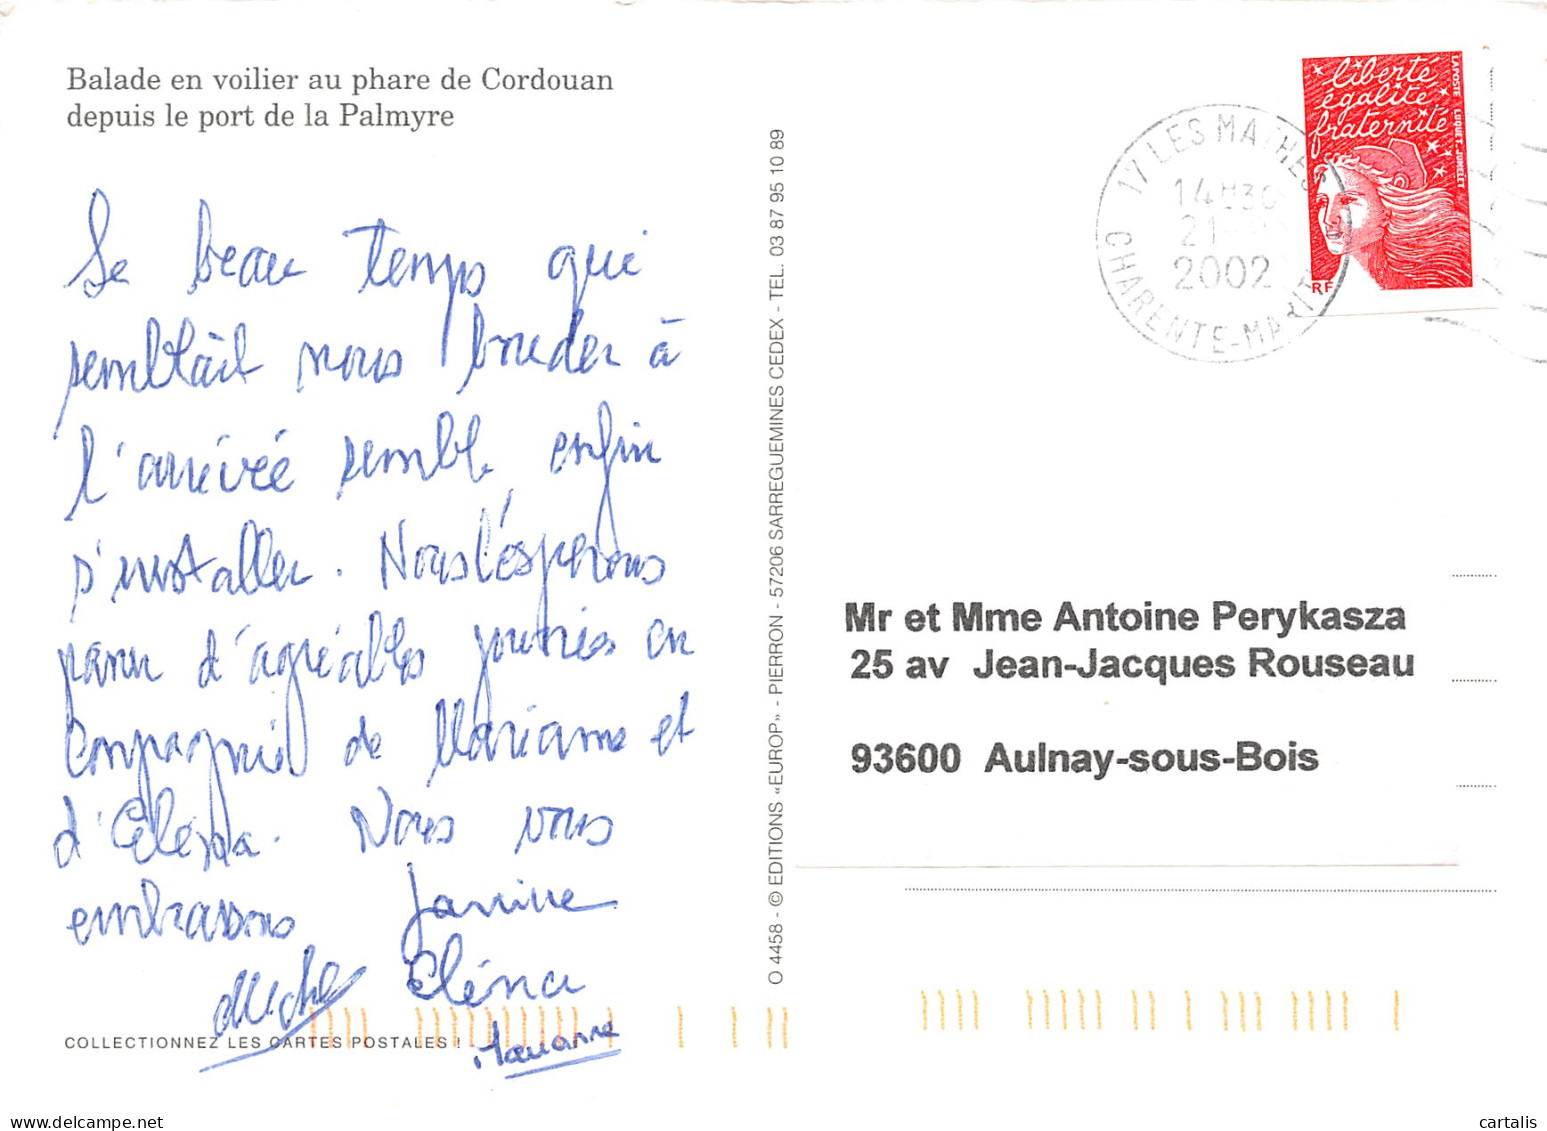 Balade en voilier au phare de Cordouan
depuis le port de la Palmyre
Le beau temps qui
semblait nous bouder à
l'arrivée semble enfin
s'installer. Nous l'espérons
passer d'agréables journées en
compagnie de Marianne et
d'Eléna. Nous vous
embrassons Janine
Eléna
Marianne
COLLECTIONNEZ LES CARTES POSTALES !
O 4458 - © EDITIONS «EUROP» - PIERRON - 57206 SARREGUEMINES CEDEX - TEL. 03 87 95 10 89
17 LES MATHES
14H30
21
2002
CHARENTE-MARIT
liberté
égalité
fraternité
LA POSTE LUQUET-JUMELET
RF
Mr et Mme Antoine Perykasza
25 av Jean-Jacques Rouseau
93600 Aulnay-sous-Bois
cartorum.fr